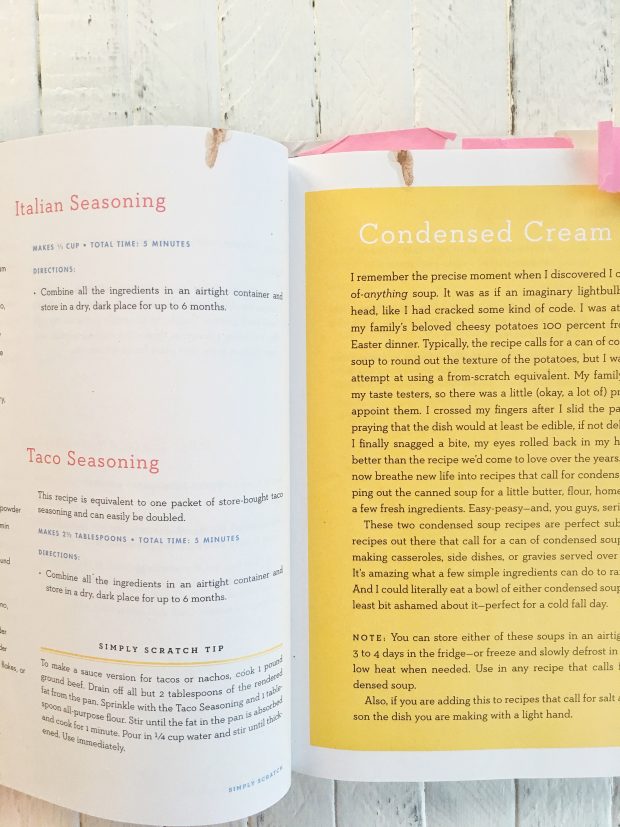 Italian Seasoning
MAKES CUP • TOTAL TIME: 5 MINUTES
DIRECTIONS:
• Combine all the ingredients in an airtight container and
store in a dry, dark place for up to 6 months.
Taco Seasoning
This recipe is equivalent to one packet of store-bought taco
seasoning and can easily be doubled.
MAKES 2½ TABLESPOONS • TOTAL TIME: 5 MINUTES
DIRECTIONS:
• Combine all the ingredients in an airtight container and
store in a dry, dark place for up to 6 months.
powder
min
und
no,
der
der
flakes, or
SIMPLY SCRATCH TIP
To make a sauce version for tacos or nachos, cook 1 pound
ground beef. Drain off all but 2 tablespoons of the rendered
fat from the pan. Sprinkle with the Taco Seasoning and 1 table-
spoon all-purpose flour. Stir until the fat in the pan is absorbed
and cook for 1 minute. Pour in ¼ cup water and stir until thick-
ened. Use immediately.
SIMPLY SCRATCH
Condensed Cream
I remember the precise moment when I discovered I c
of-anything soup. It was as if an imaginary lightbulb
head, like I had cracked some kind of code. I was at
my family's beloved cheesy potatoes 100 percent fro
Easter dinner. Typically, the recipe calls for a can of co
soup to round out the texture of the potatoes, but I wa
attempt at using a from-scratch equivalent. My family
my taste testers, so there was a little (okay, a lot of) pr
appoint them. I crossed my fingers after I slid the pa
praying that the dish would at least be edible, if not del
I finally snagged a bite, my eyes rolled back in my h
better than the recipe we'd come to love over the years.
now breathe new life into recipes that call for condens
ping out the canned soup for a little butter, flour, home
a few fresh ingredients. Easy-peasy—and, you guys, seri
These two condensed soup recipes are perfect sub
recipes out there that call for a can of condensed soup
making casseroles, side dishes, or gravies served over
It's amazing what a few simple ingredients can do to ra
And I could literally eat a bowl of either condensed soup
least bit ashamed about it—perfect for a cold fall day.
NOTE: You can store either of these soups in an airtig
3 to 4 days in the fridge—or freeze and slowly defrost in
low heat when needed. Use in any recipe that calls f
densed soup.
Also, if you are adding this to recipes that call for salt a
son the dish you are making with a light hand.